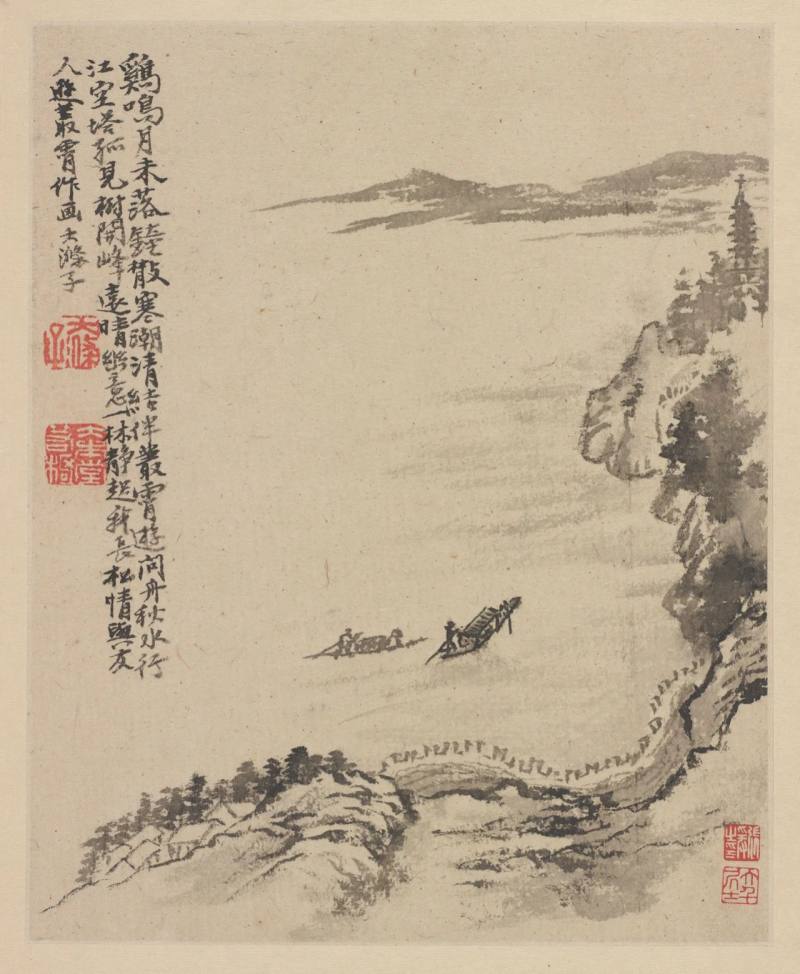 鷄鳴月未落鐘散寒潮清結伴叢霄遊問舟秋水行
江空塔孤見樹開峰遠晴幽意一林靜起我長松情與友
人遊叢霄作画大滌子